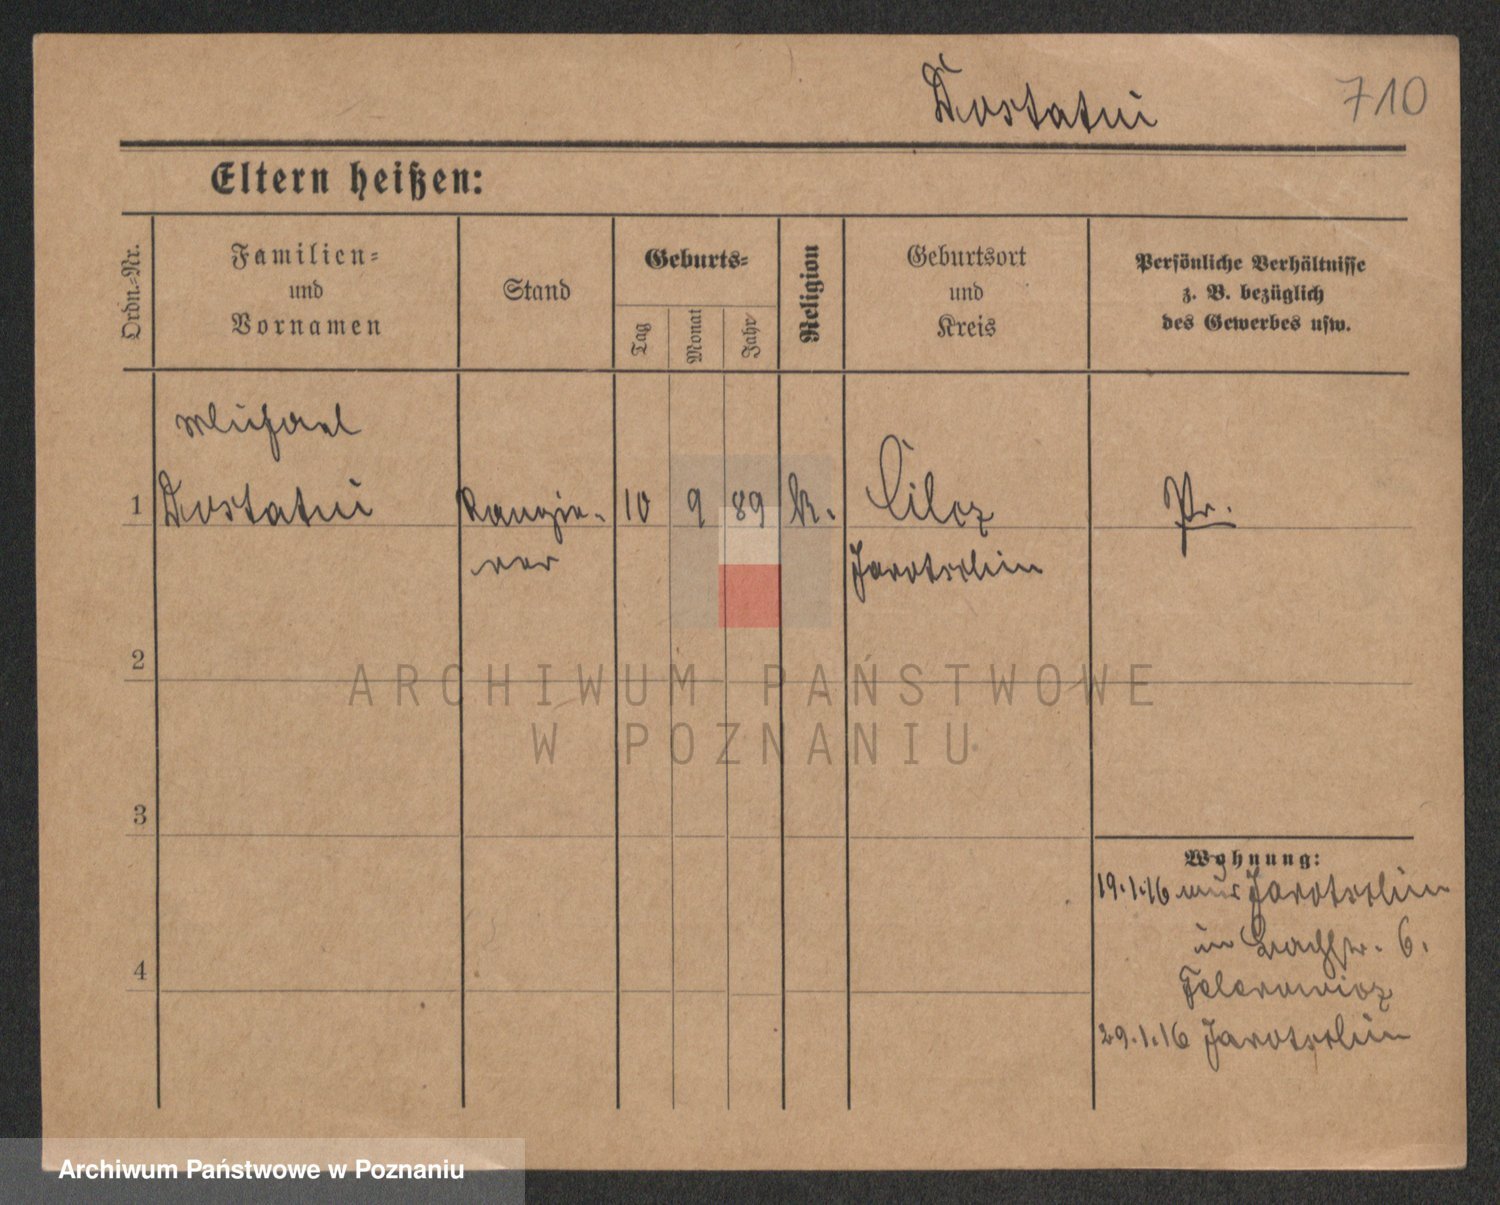 Dostatni 710
Eltern heißen:
Ordn.-Nr.
Familien-
und
Vornamen
Stand
Geburts-
Tag
Monat
Jahr
Religion
Geburtsort
und
Kreis
Persönliche Verhältnisse
z. B. bezüglich
des Gewerbes usw.
Michael
1 Dostatni Rangie- 10 9 89 k. Cilcz Pr.
rer Jarotschin
2
3
4
Wohnung:
19.1.16 aus Jarotschin
in 6.
29.1.16 Jarotschin
ARCHIWUM PAŃSTWOWE
W POZNANIU
Archiwum Państwowe w Poznaniu